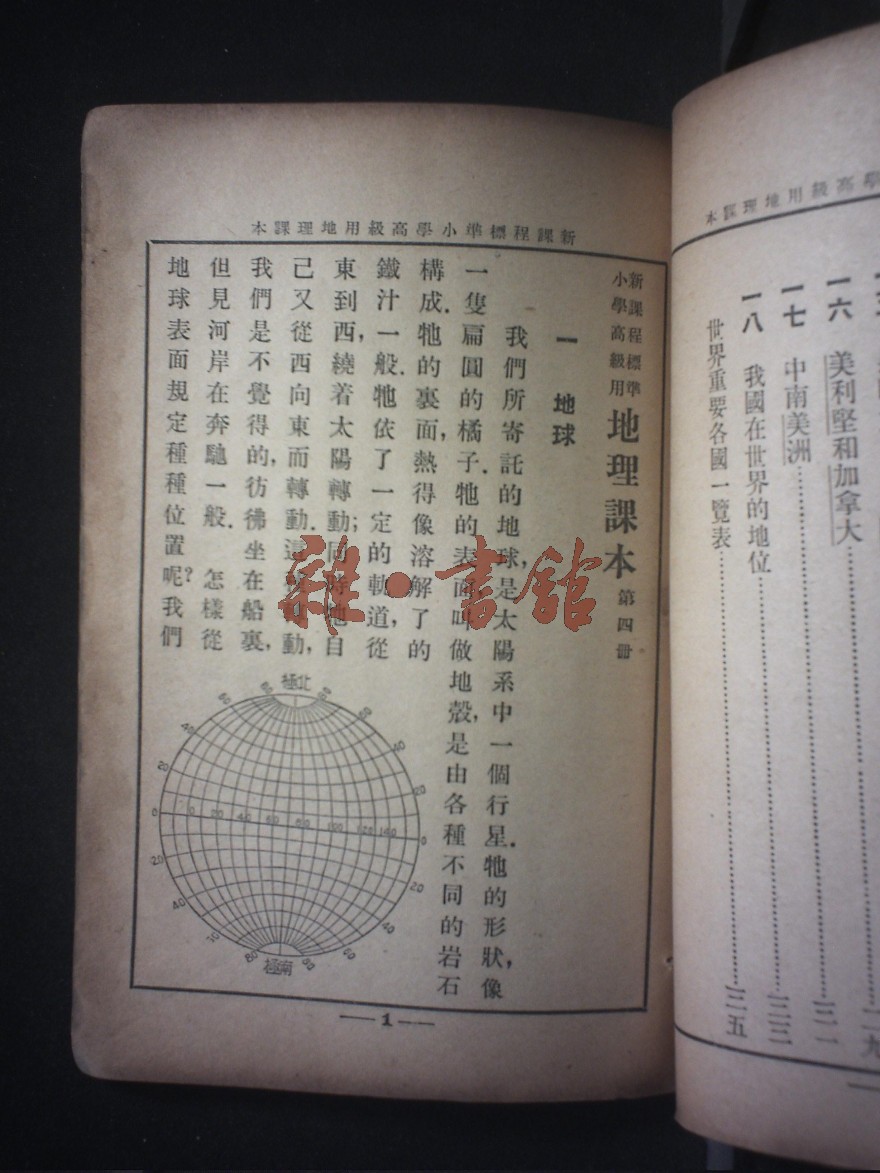 新課程標準小學高級用地理課本
新課程標準
小學高級用
地理課本 第四冊
一 地球
我們所寄託的地球,是太陽系中一個行星.牠的形狀,像
一隻扁圓的橘子.牠的表面叫做地殼,是由各種不同的岩石
構成.牠的裏面,熱得像溶解了的
鐵汁一般.牠依了一定的軌道,從
東到西,繞着太陽轉動;同時牠自
己又從西向東而轉動.這種轉動,
我們是不覺得的,彷彿坐在船裏,
但見河岸在奔馳一般. 怎樣從
地球表面規定種種位置呢?我們
北極
80 80
60 60
40 40
20 20
0 0 20 40 60 80 100 120 140 0
20 20
40 40
60
80 80
南極
1
雜·書館
學高級用地理課本
一六 美利堅和加拿大
一七 中南美洲
一八 我國在世界的地位
世界重要各國一覽表